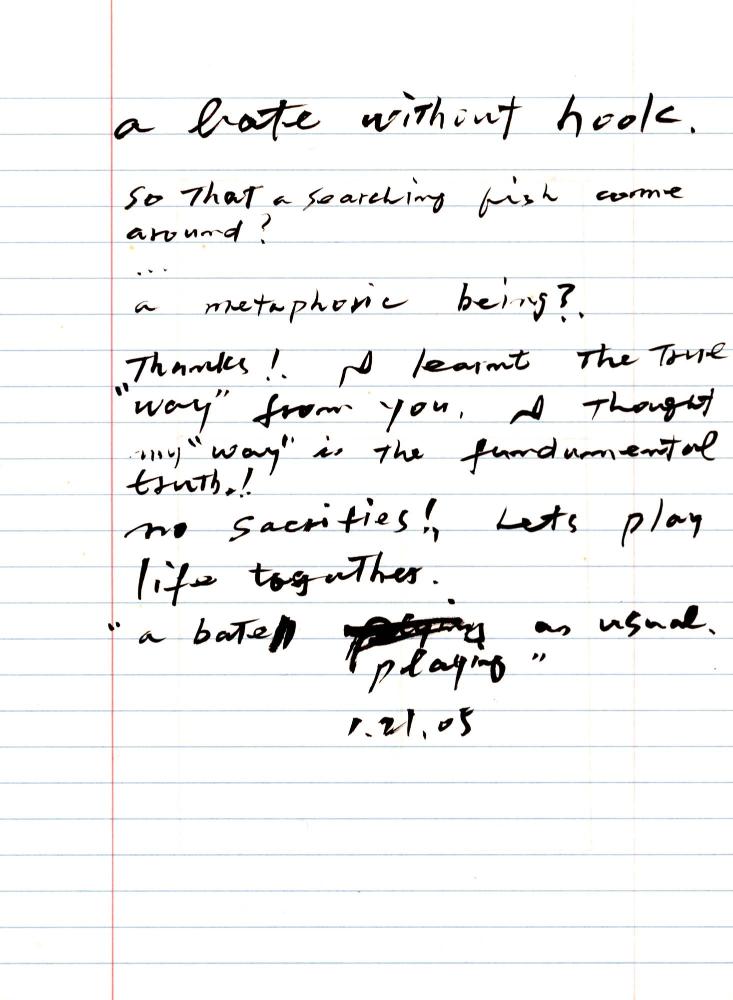 a bate without hook.
so that a searching fish come
around?
...
a metaphoric being?
Thanks! I learnt the true
"way" from you. I thought
my "way" is the fundumental
truth.!
no sacrifies! Lets play
life togather.
"a bate as usual.
playing"
1.21.05